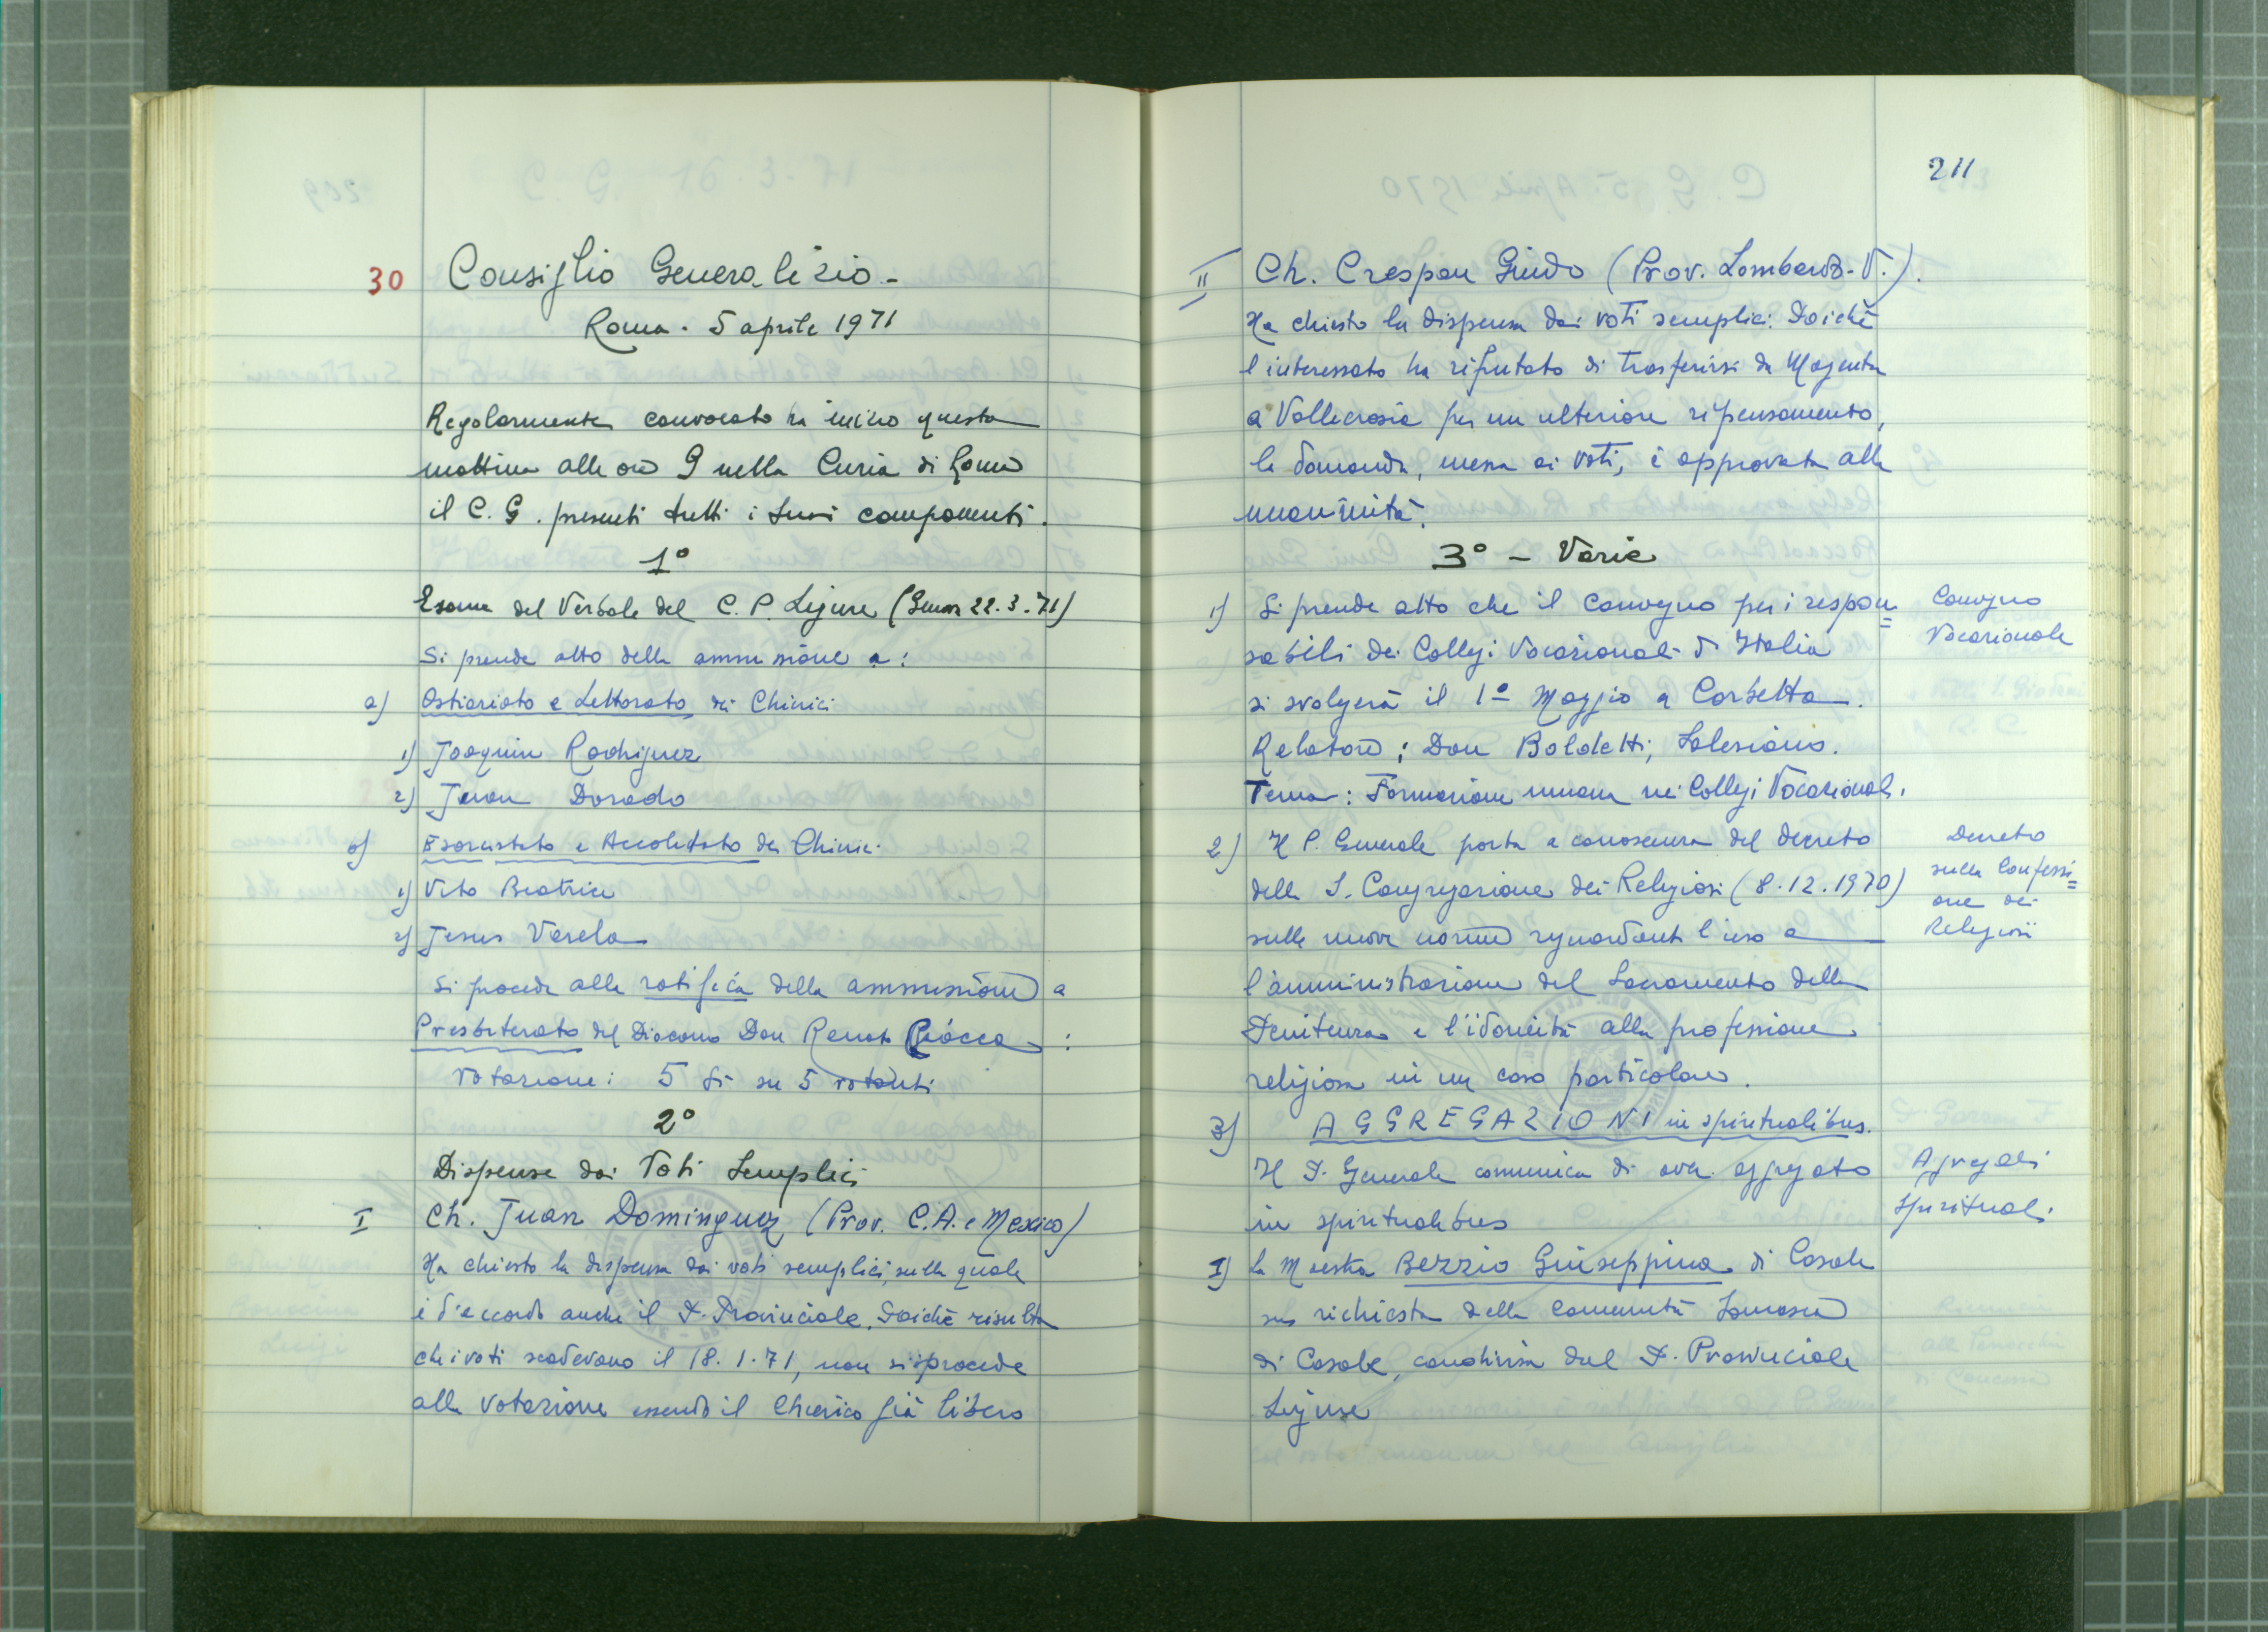 30 Consiglio Generalizio -
Roma. 5 aprile 1971
Regolarmente convocato ha inizio questa
mattina alle ore 9 nella Curia di Roma
il C. G. presenti tutti i suoi componenti.
1°
Esame del Verbale del C. P. Ligure (Genova 22.3.71)
Si prende atto della ammissione a:
a) Ostiariato e Lettorato dei Chierici
1) Joaquin Rodriguez
2) Juan Dorado
b) Esorcistato e Accolitato dei Chierici
1) Vito Beatrice
2) Jesus Varela
Si procede alla ratifica della ammissione a
Presbiterato del Diacono Don Renato Ciocca:
Votazione: 5 sì su 5 votanti
2°
Dispense dai Voti Semplici
I Ch. Juan Dominguez (Prov. C.A. e Mexico)
Ha chiesto la dispensa dai voti semplici, sulla quale
è d'accordo anche il P. Provinciale. Poichè risulta
che i voti scadevano il 18.1.71, non si procede
alla votazione essendo il Chierico già libero
211
II Ch. Crespan Guido (Prov. Lombardo-V.).
Ha chiesto la dispensa dai voti semplici. Poichè
l'interessato ha rifiutato di trasferirsi da Magenta
a Vallecrosia per un ulteriore ripensamento,
la domanda, messa ai voti, è approvata alla
unanimità.
3° - Varie
1) Si prende atto che il Convegno per i respon=
sabili dei Collegi Vocazionali d'Italia
si svolgerà il 1° Maggio a Corbetta.
Relatore: Don Boldetti, Salesiano.
Tema: Formazione umana nei Collegi Vocazionali.
Convegno
Vocazionale
2) Il P. Generale porta a conoscenza del decreto
della S. Congregazione dei Religiosi (8.12.1970)
sulle nuove norme riguardanti l'uso e
l'amministrazione del Sacramento della
Penitenza e l'idoneità alla professione
religiosa in un caso particolare.
Decreto
sulla Confessi=
one dei
Religiosi
3) AGGREGAZIONI in spiritualibus.
Il P. Generale comunica di aver aggregato
in spiritualibus
Aggregati
Spirituali
I) la Maestra Bezzio Giuseppina di Casale
su richiesta della Comunità Somasca
di Casale, condivisa dal P. Provinciale
Ligure